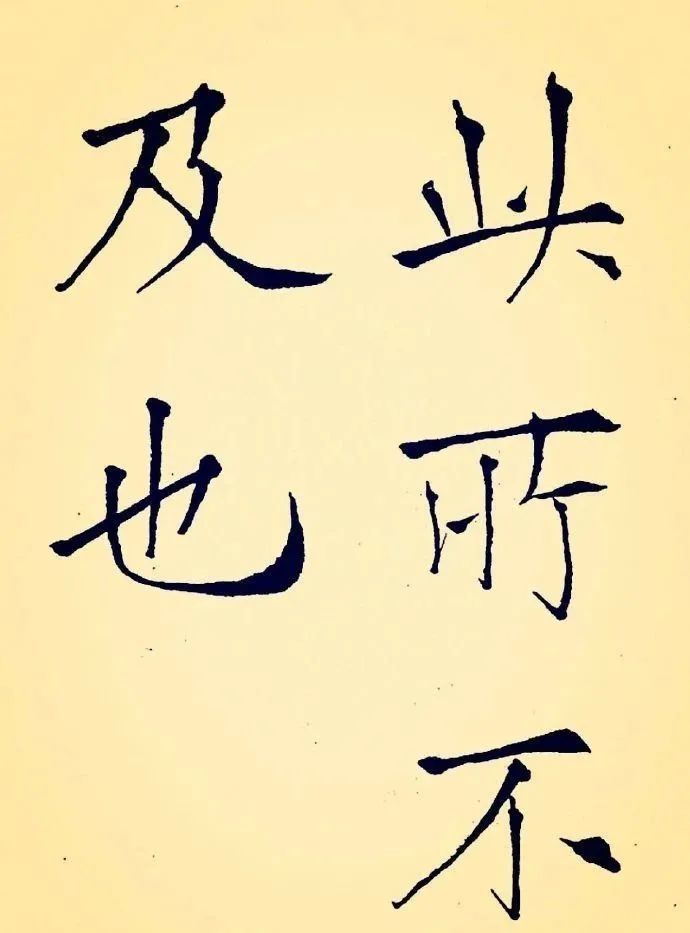 所不
及也